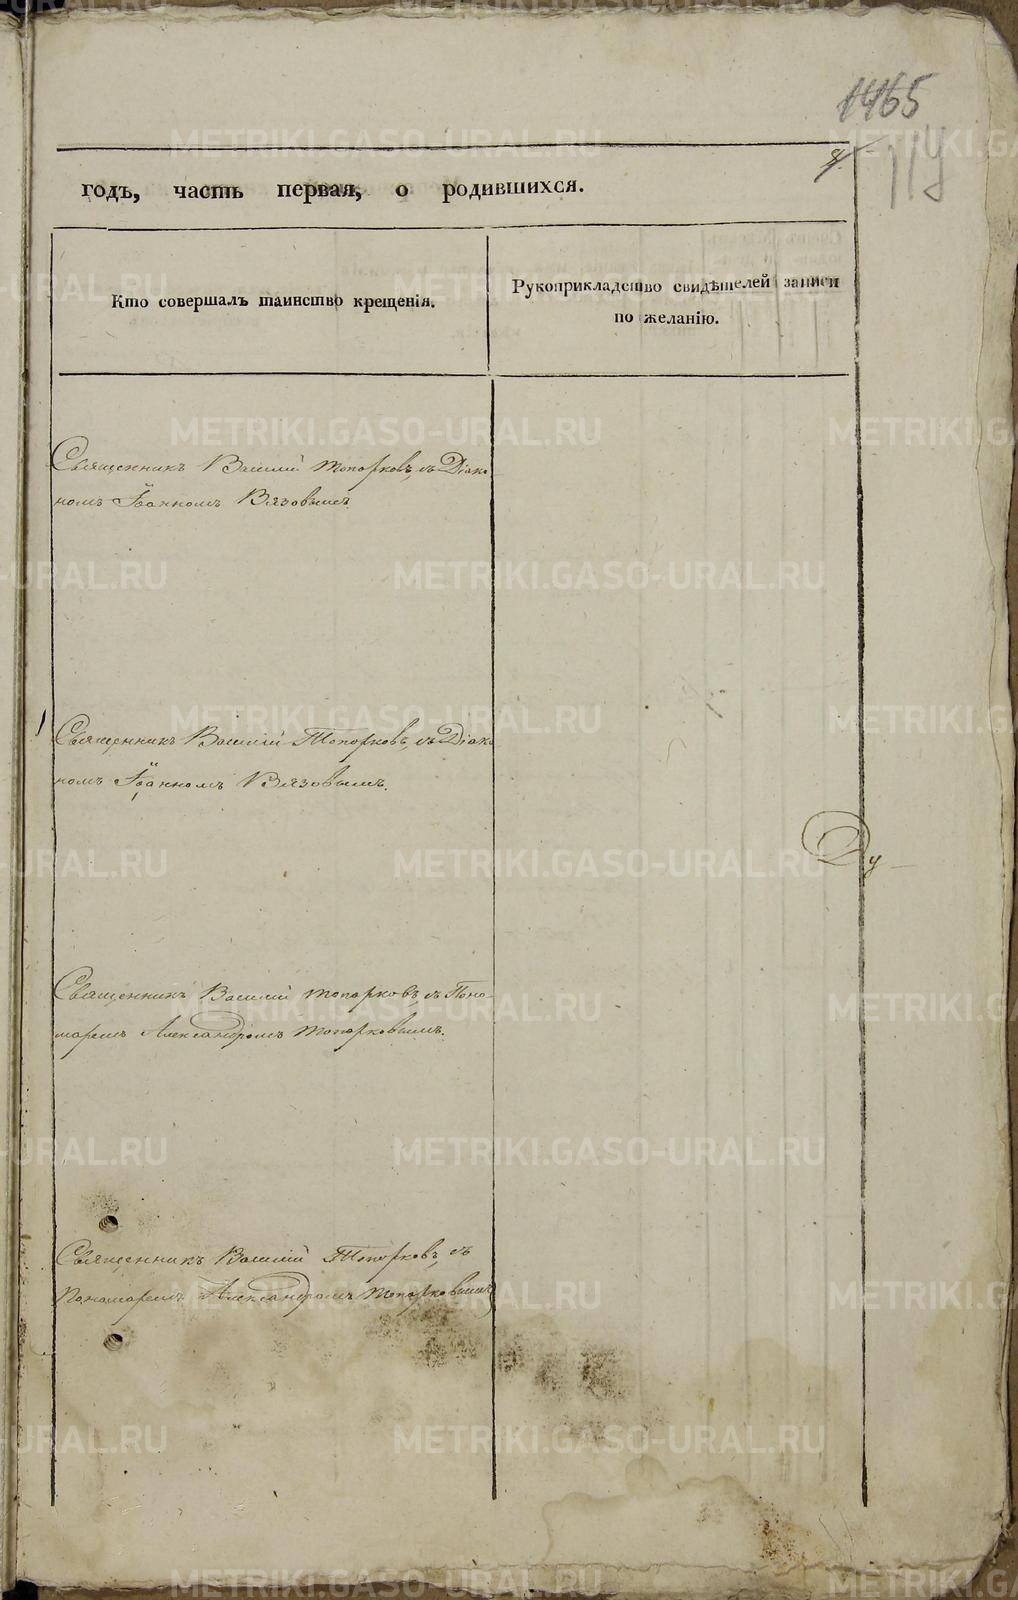 1465
годъ, часть первая, о родившихся.
Кто совершалъ таинство крещенія.
Рукоприкладство свидѣтелей записи
по желанію.
Священникъ Василій Топорковъ, съ Діако-
номъ Іоанномъ Вязовымъ
Священникъ Василій Топорковъ, съ Діако-
номъ Іоанномъ Вязовымъ.
Ду-
Священникъ Василій Топорковъ, съ Поно-
маремъ Александромъ Топорковымъ.
Священникъ Василій Топорковъ, съ
Пономаремъ Александромъ Топорковымъ
METRIKI.GASO-URAL.RU